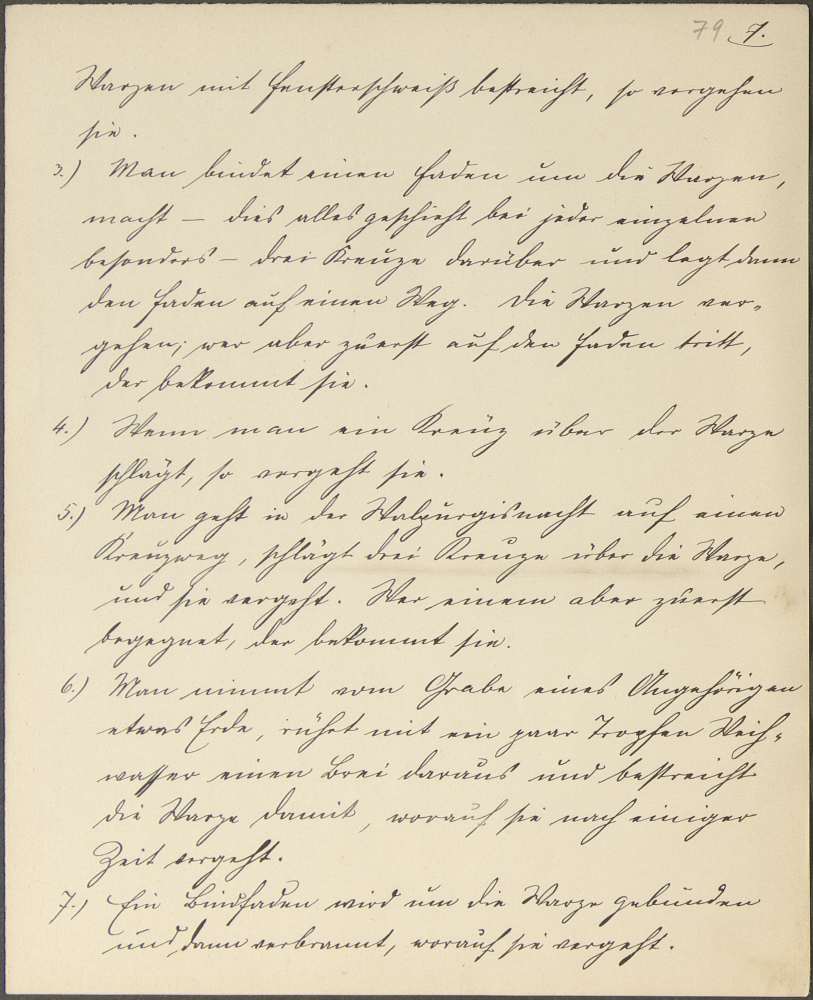 79 7.
Warzen mit Fensterschweiß bestreicht, so vergehen
sie.
3.) Man bindet einen Faden um die Warzen,
macht – dies alles geschieht bei jeder einzelnen
besonders – drei Kreuze darüber und legt dann
den Faden auf einen Weg. Die Warzen ver-
gehen; wer aber zuerst auf den Faden tritt,
der bekommt sie.
4.) Wenn man ein Kreuz über der Warze
schlägt, so vergeht sie.
5.) Man geht in der Walpurgisnacht auf einen
Kreuzweg, schlägt drei Kreuze über die Warze,
und sie vergeht. Wer einem aber zuerst
begegnet, der bekommt sie.
6.) Man nimmt vom Grabe eines Angehörigen
etwas Erde, rührt mit ein paar Tropfen Weih-
wasser einen Brei daraus und bestreicht
die Warze damit, worauf sie nach einiger
Zeit vergeht.
7.) Ein Bindfaden wird um die Warze gebunden
und dann verbrannt, worauf sie vergeht.